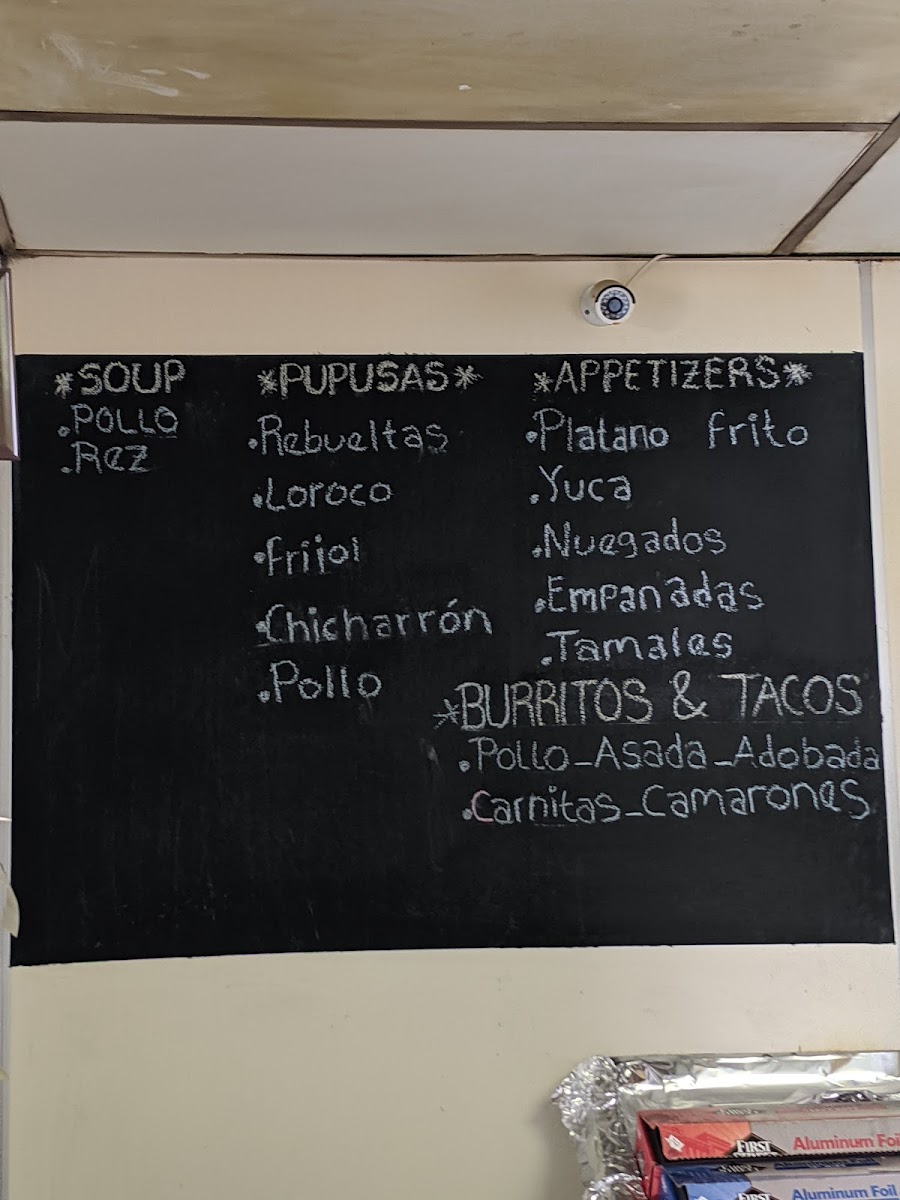 *SOUP
.POLLO
.Rez
*PUPUSAS*
.Rebueltas
.Loroco
.Frijol
.Chicharrón
.Pollo
*APPETIZERS*
.Platano frito
.Yuca
.Nuegados
.Empanadas
.Tamales
*BURRITOS & TACOS
.Pollo_Asada_Adobada
.Carnitas_Camarones
FIRST
Aluminum Foi
FIRST
Aluminum Foil